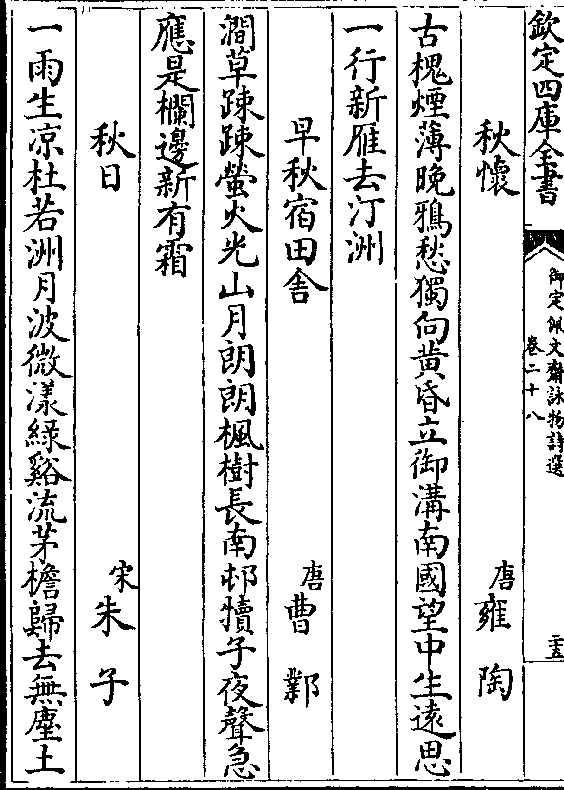 欽定四庫全書
御定佩文齋詠物詩選
卷二十八
二十五
秋懷
唐雍陶
古槐煙薄晚鴉愁獨向黃昏立御溝南國望中生遠思
一行新雁去汀洲
早秋宿田舍
唐曹鄴
澗草踈踈螢火光山月朗朗楓樹長南邨犢子夜聲急
應是欄邊新有霜
秋日
宋朱子
一雨生凉杜若洲月波微漾綠谿流茅檐歸去無塵土